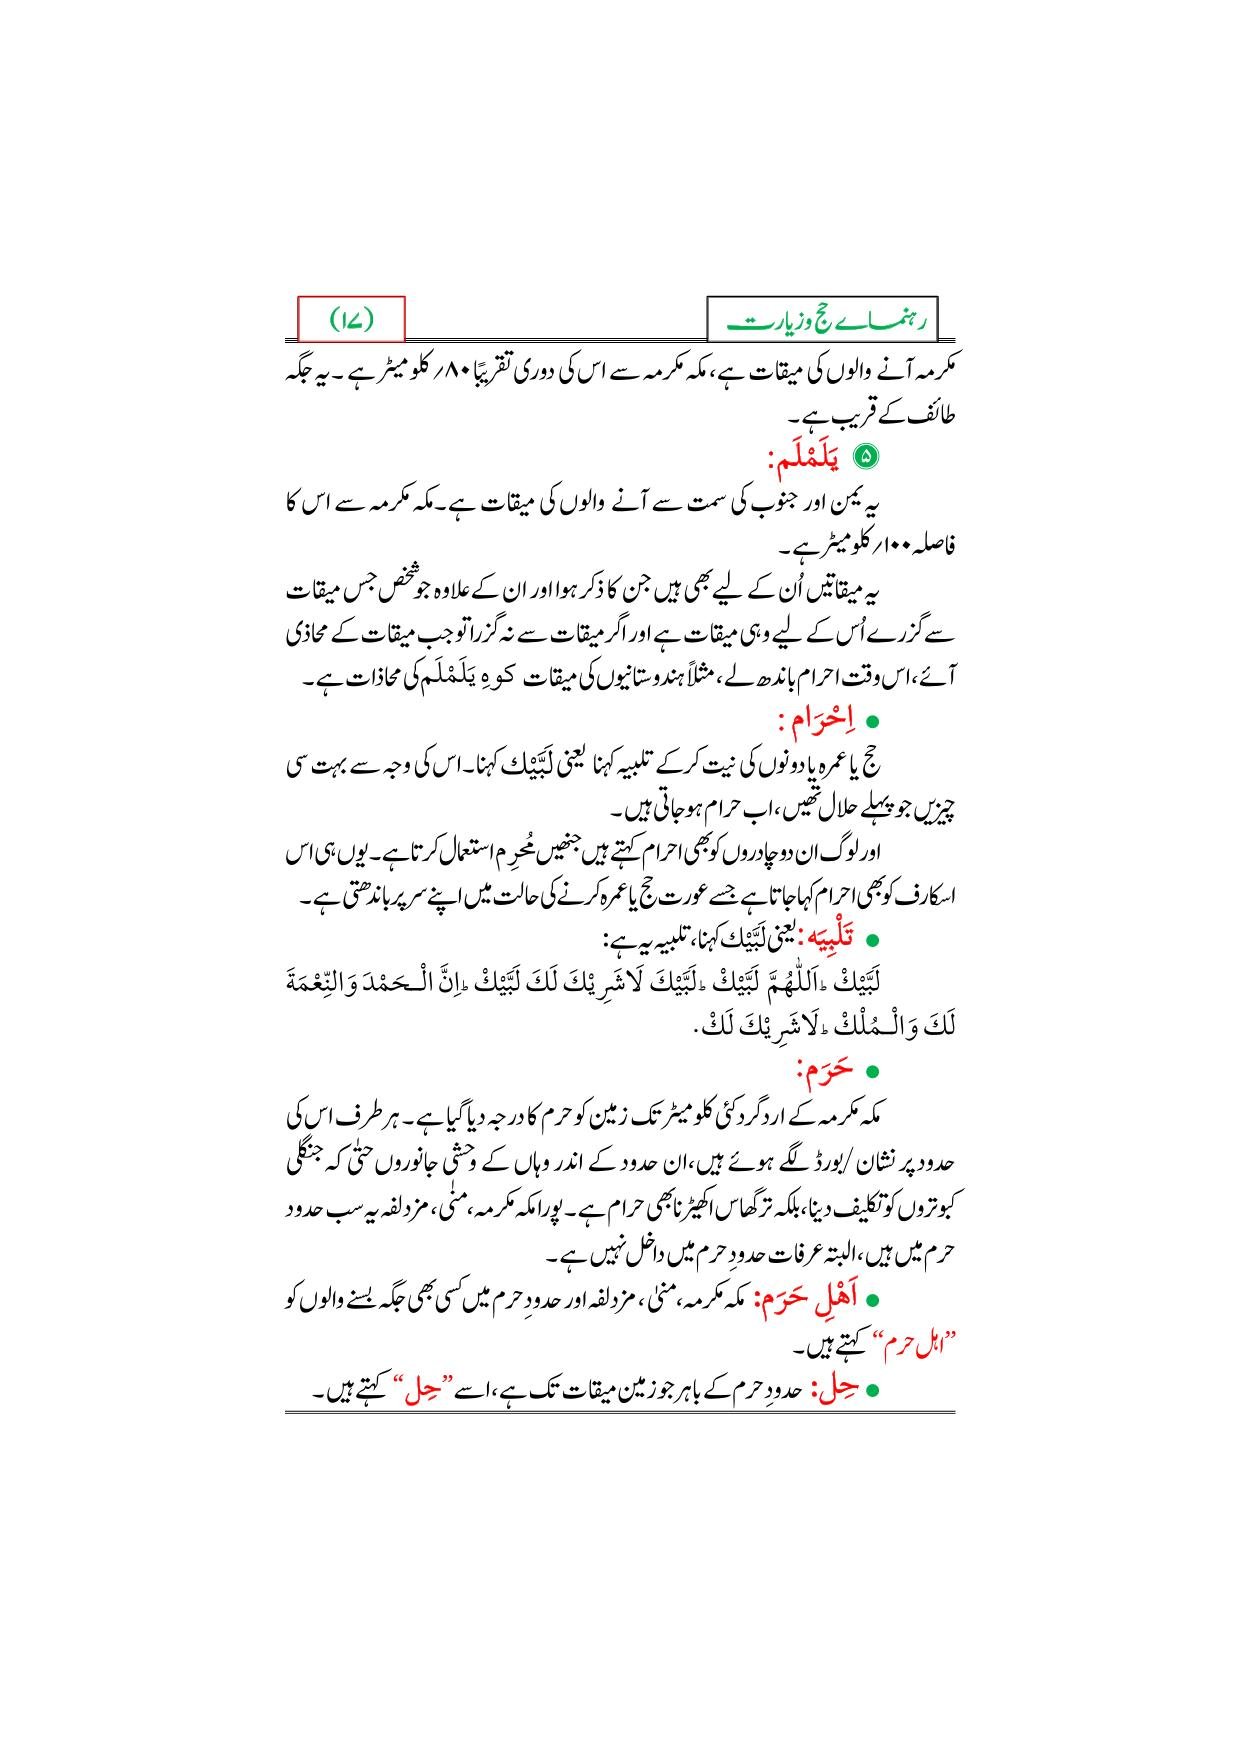 رہنمائے حج وزیارت
(۱۷)
مکرمہ آنے والوں کی میقات ہے، مکہ مکرمہ سے اس کی دوری تقریبًا ۸۰؍ کلو میٹر ہے ۔ یہ جگہ
طائف کے قریب ہے۔
۵ یَلَمْلَم:
یہ یمن اور جنوب کی سمت سے آنے والوں کی میقات ہے۔مکہ مکرمہ سے اس کا
فاصلہ ۱۰۰؍ کلومیٹر ہے۔
یہ میقاتیں اُن کے لیے بھی ہیں جن کا ذکر ہوا اور ان کے علاوہ جو شخص جس میقات
سے گزرے اُس کے لیے وہی میقات ہے اور اگر میقات سے نہ گزرا تو جب میقات کے محاذی
آئے،اس وقت احرام باندھ لے، مثلاً ہندوستانیوں کی میقات کوہِ یَلَمْلَم کی محاذات ہے۔
● اِحْرَام :
حج یا عمرہ یا دونوں کی نیت کرکے تلبیہ کہنا یعنی لَبَّیْك کہنا۔اس کی وجہ سے بہت سی
چیزیں جو پہلے حلال تھیں،اب حرام ہوجاتی ہیں۔
اور لوگ ان دو چادروں کو بھی احرام کہتے ہیں جنھیں مُحرِم استعمال کرتا ہے۔ یوں ہی اس
اسکارف کو بھی احرام کہا جاتا ہے جسے عورت حج یا عمرہ کرنے کی حالت میں اپنے سر پر باندھتی ہے۔
● تَلْبِیَه: یعنی لَبَّیْك کہنا، تلبیہ یہ ہے:
لَبَّیْكْ ؕ اَللّٰهُمَّ لَبَّیْكْ ؕ لَبَّیْكَ لَا شَرِیْكَ لَكَ لَبَّیْكْ ؕ اِنَّ الْـحَمْدَ وَالنِّعْمَةَ
لَكَ وَالْـمُلْكْ ؕ لَا شَرِیْكَ لَكْ.
● حَرَم:
مکہ مکرمہ کے ارد گرد کئی کلو میٹر تک زمین کو حرم کا درجہ دیا گیا ہے۔ ہر طرف اس کی
حدود پر نشان / بورڈ لگے ہوئے ہیں،ان حدود کے اندر وہاں کے وحشی جانوروں حتّٰی کہ جنگلی
کبوتروں کو تکلیف دینا،بلکہ تر گھاس اکھیڑنا بھی حرام ہے۔ پورا مکہ مکرمہ،منٰی، مزدلفہ یہ سب حدود
حرم میں ہیں،البتہ عرفات حدودِ حرم میں داخل نہیں ہے۔
● اَهْلِ حَرَم: مکہ مکرمہ،منیٰ، مزدلفہ اور حدودِ حرم میں کسی بھی جگہ بسنے والوں کو
”اہل حرم“ کہتے ہیں۔
● حِل: حدودِ حرم کے باہر جو زمین میقات تک ہے،اسے ”حِل“ کہتے ہیں۔